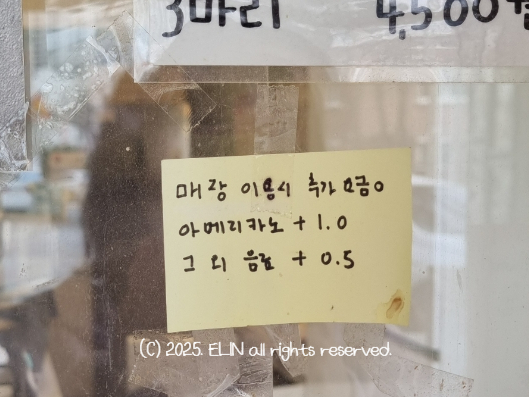 3마리 4,500원
매장 이용시 추가 요금o
아메리카노 + 1.0
그 외 음료 + 0.5
(C) 2025. ELIN all rights reserved.